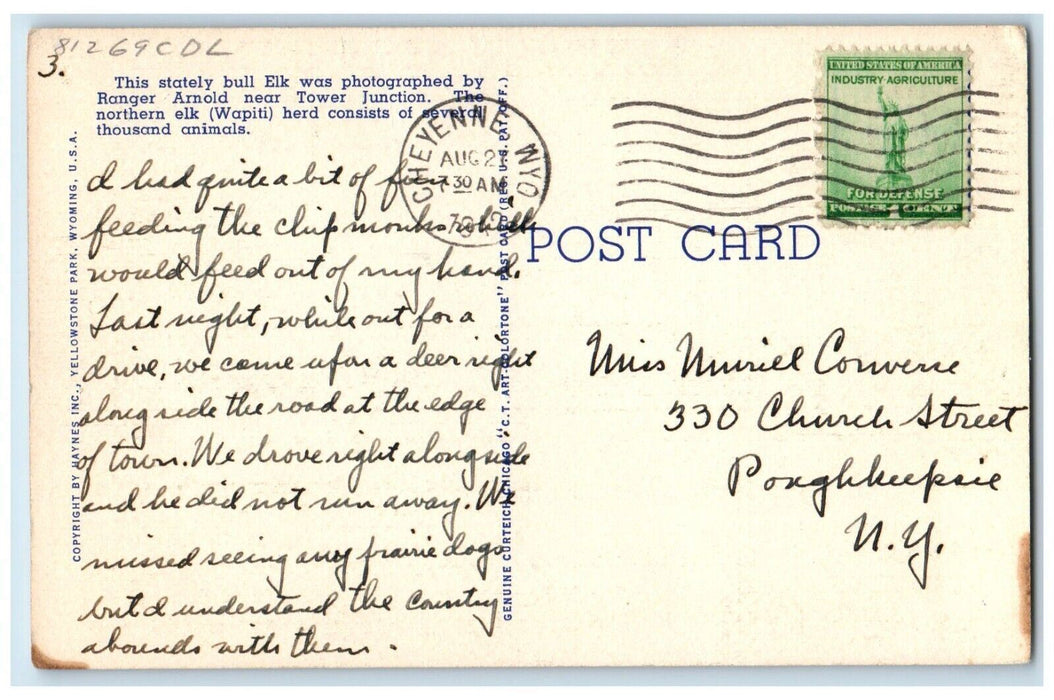 81269CDL
3.
This stately bull Elk was photographed by
Ranger Arnold near Tower Junction. The
northern elk (Wapiti) herd consists of several
thousand animals.
I had quite a bit of fun
feeding the chipmonks which
would feed out of my hand.
Last night, while out for a
drive, we come upon a deer right
along side the road at the edge
of town. We drove right alongside
and he did not run away. We
missed seeing any prairie dogs
but I understand the country
abounds with them.
COPYRIGHT BY HAYNES INC., YELLOWSTONE PARK, WYOMING, U.S.A.
GENUINE CURTEICH-CHICAGO "C.T. ART-COLORTONE" POST CARD (REG. U.S. PAT. OFF.)
CHEYENNE WYO
AUG 21
7 30 AM
POST CARD
UNITED STATES OF AMERICA
INDUSTRY AGRICULTURE
FOR DEFENSE
Miss Muriel Converse
330 Church Street
Poughkeepsie
N.Y.